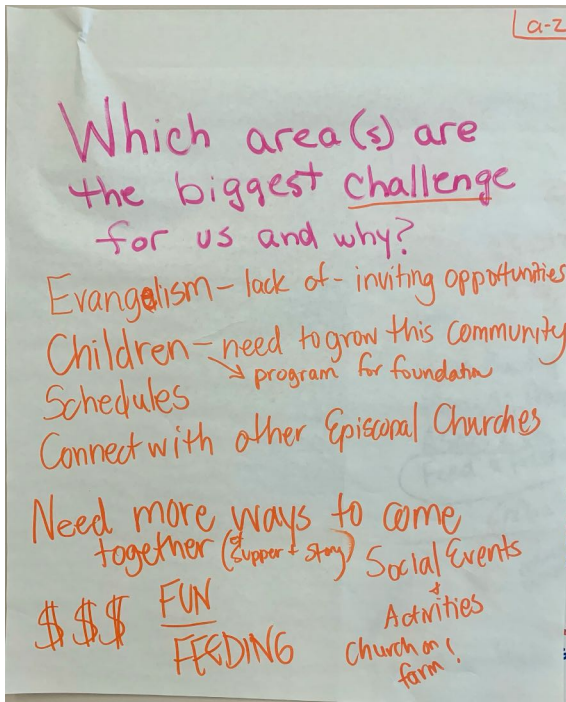 a-z
Which area(s) are
the biggest challenge
for us and why?
Evangelism - lack of - inviting opportunities
Children - need to grow this community
→ program for foundation
Schedules
Connect with other Episcopal Churches
Need more ways to come
together (supper + story)
Social Events
+
Activities
Church on
farm!
$$$ FUN
FEEDING